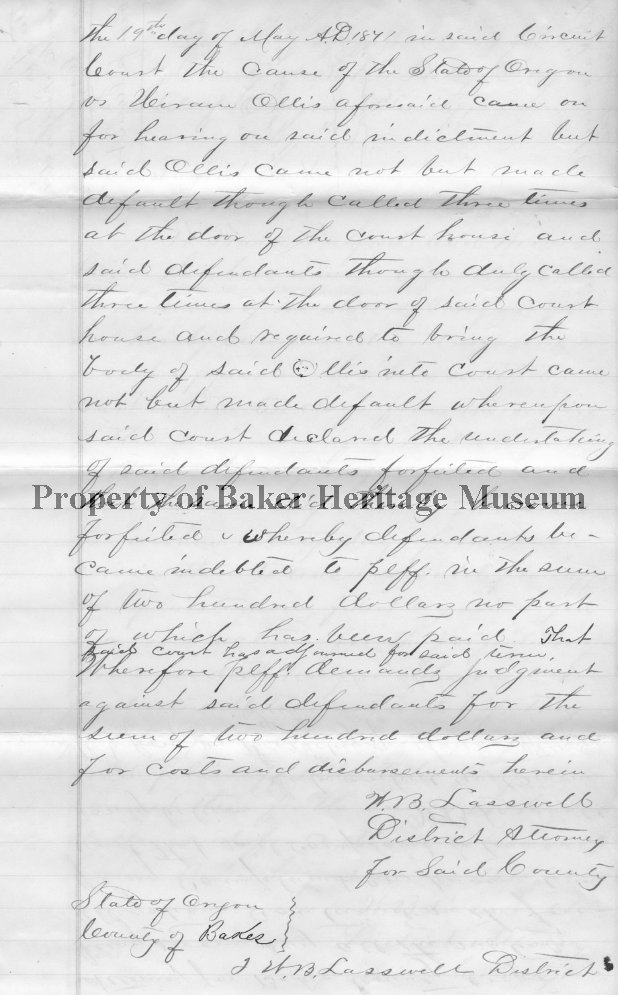 the 19th day of May A.D 1871 in said Circuit
Court the cause of the State of Oregon
vs Hiram Ollis aforesaid came on
for hearing on said indictment but
said Ollis came not but made
default though called three times
at the door of the court house and
said defendants though duly called
three times at the door of said court
house and required to bring the
body of said Ollis into Court came
not but made default whereupon
said court declared the undertaking
of said defendants forfeited and
Property of Baker Heritage Museum
forfeited & whereby defendants be-
came indebted to plff. in the sum
of two hundred dollars no part
of which has been paid. That
said court has adjourned for said term.
Wherefore plff. demands judgment
against said defendants for the
sum of two hundred dollars and
for costs and disbursements herein
W.B. Lasswell
District Attorney
for Said County
State of Oregon
County of Baker
I W.B. Lasswell District